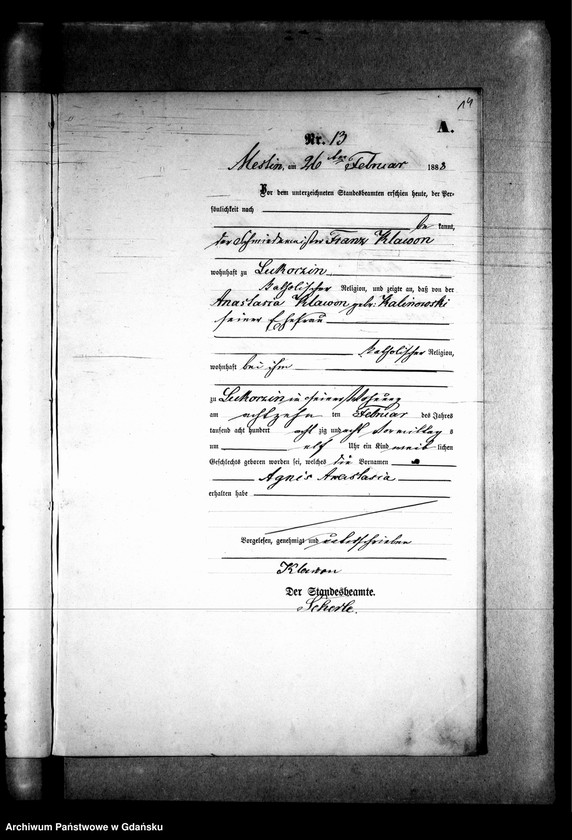 14
A.
Nr. 13
Mestin, am 26ten Februar 1888
Vor dem unterzeichneten Standesbeamten erschien heute, der Per-
sönlichkeit nach
be kannt,
der Schmiedemeister Franz Klawon
wohnhaft zu Lukorzin
katholischer Religion, und zeigte an, daß von der
Anastasia Klawon geb: Kalinowski
seiner Ehefrau
katholischer Religion,
wohnhaft bei ihm
zu Lukorzin in seiner Wohnung
am achtzehn ten Februar des Jahres
tausend acht hundert acht zig und acht Vormittag s
um elf Uhr ein Kind weib lichen
Geschlechts geboren worden sei, welches die Vornamen
Agnes Anastasia
erhalten habe
Vorgelesen, genehmigt und unterschrieben
Klawon
Der Standesbeamte.
Archiwum Państwowe w Gdańsku